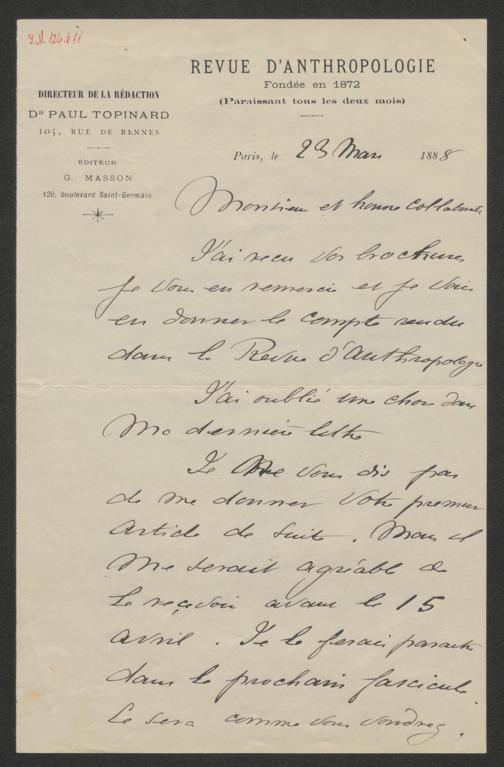 I.N. 124.411
REVUE D'ANTHROPOLOGIE
Fondée en 1872
(Paraissant tous les deux mois)
DIRECTEUR DE LA RÉDACTION
Dr PAUL TOPINARD
105, RUE DE RENNES
ÉDITEUR
G. MASSON
120, boulevard Saint-Germain
Paris, le 23 Mars 1888
Monsieur et honoré Collaborateur
J'ai reçu vos brochures
Je vous en remercie et je vais
en donner le compte rendu
dans la Revue d'anthropologie
J'ai oublié une chose dans
ma dernière lettre
Je ne vous dis pas
de me donner votre premier
article de suite. Mais il
me serait agréable de
le recevoir avant le 15
avril. Je le ferai paraître
dans le prochain fascicule.
Ce sera comme vous voudrez.